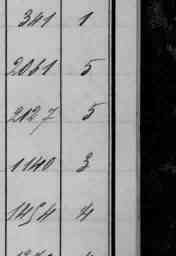 341 1
2061 5
2127 5
1140 3
1454 4